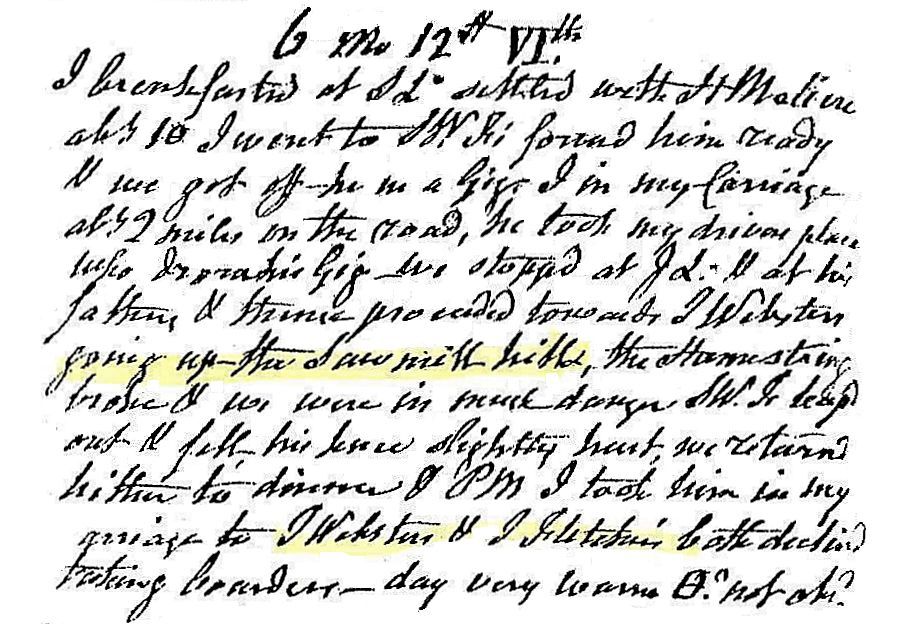 6 Mo 12th VIth
I breakfasted at S Ls settled with
abt 10 I went to found him ready
& we got off he in a Gig & I in my Carriage
abt 2 miles on the road, he took my drivers place
who drove his Gig we stopped at J Ls & at his
fathers & thence proceeded towards J Websters
going up the Saw mill hill, the Hamestring
broke & we were in much danger leapd
out & fell, his knee slightly hurt, we returnd
hither to dinner & PM I took him in my
arriage to J Websters & J Fletchers both declind
taking boarders - day very warm not